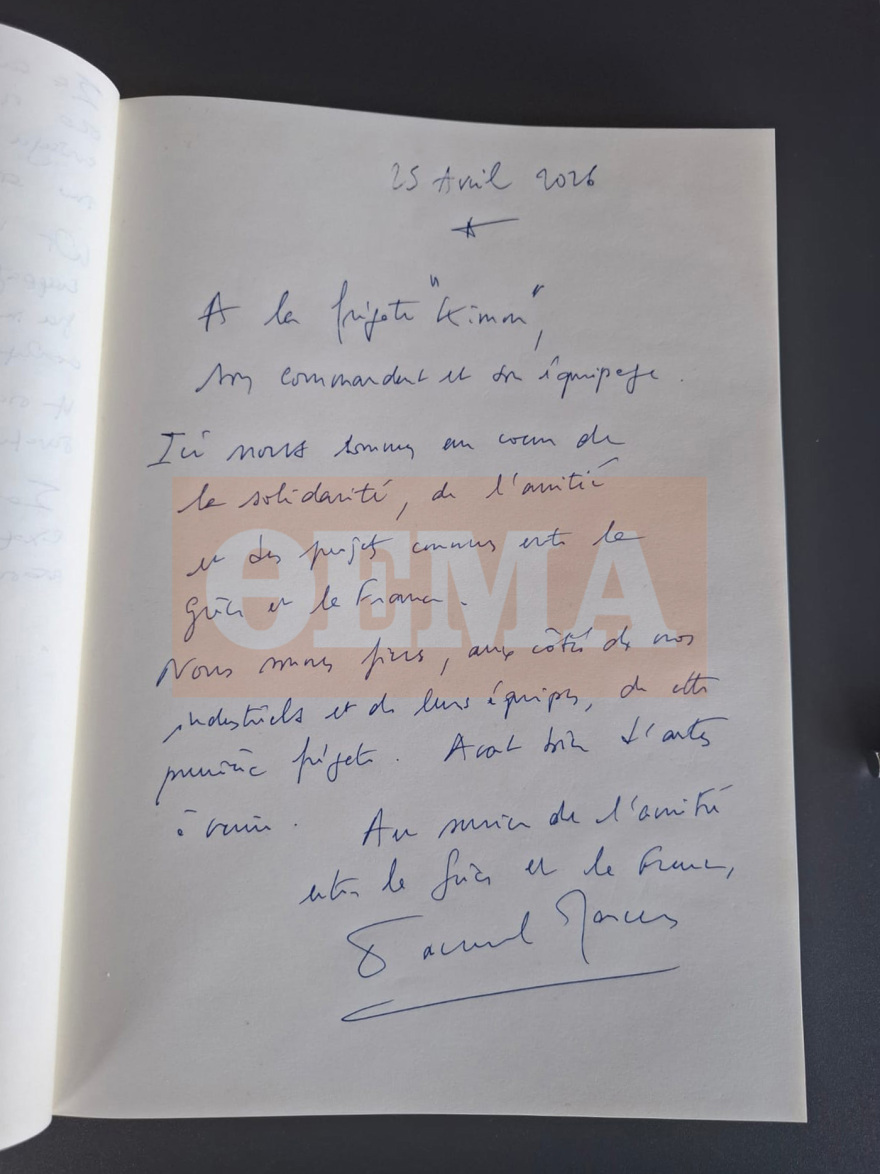 25 Avril 2026
A la frégate "Kimon",
son commandant et son équipage.
Ici nous sommes au coeur de
la solidarité, de l'amitié
et des projets communs entre la
Grèce et la France.
ΘΕΜΑ
Nous sommes fiers, aux côtés de nos
industriels et de leurs équipes, de cette
première frégate. Avant bien d'autres
à venir. Au service de l'amitié
entre la Grèce et la France,
Emmanuel Macron